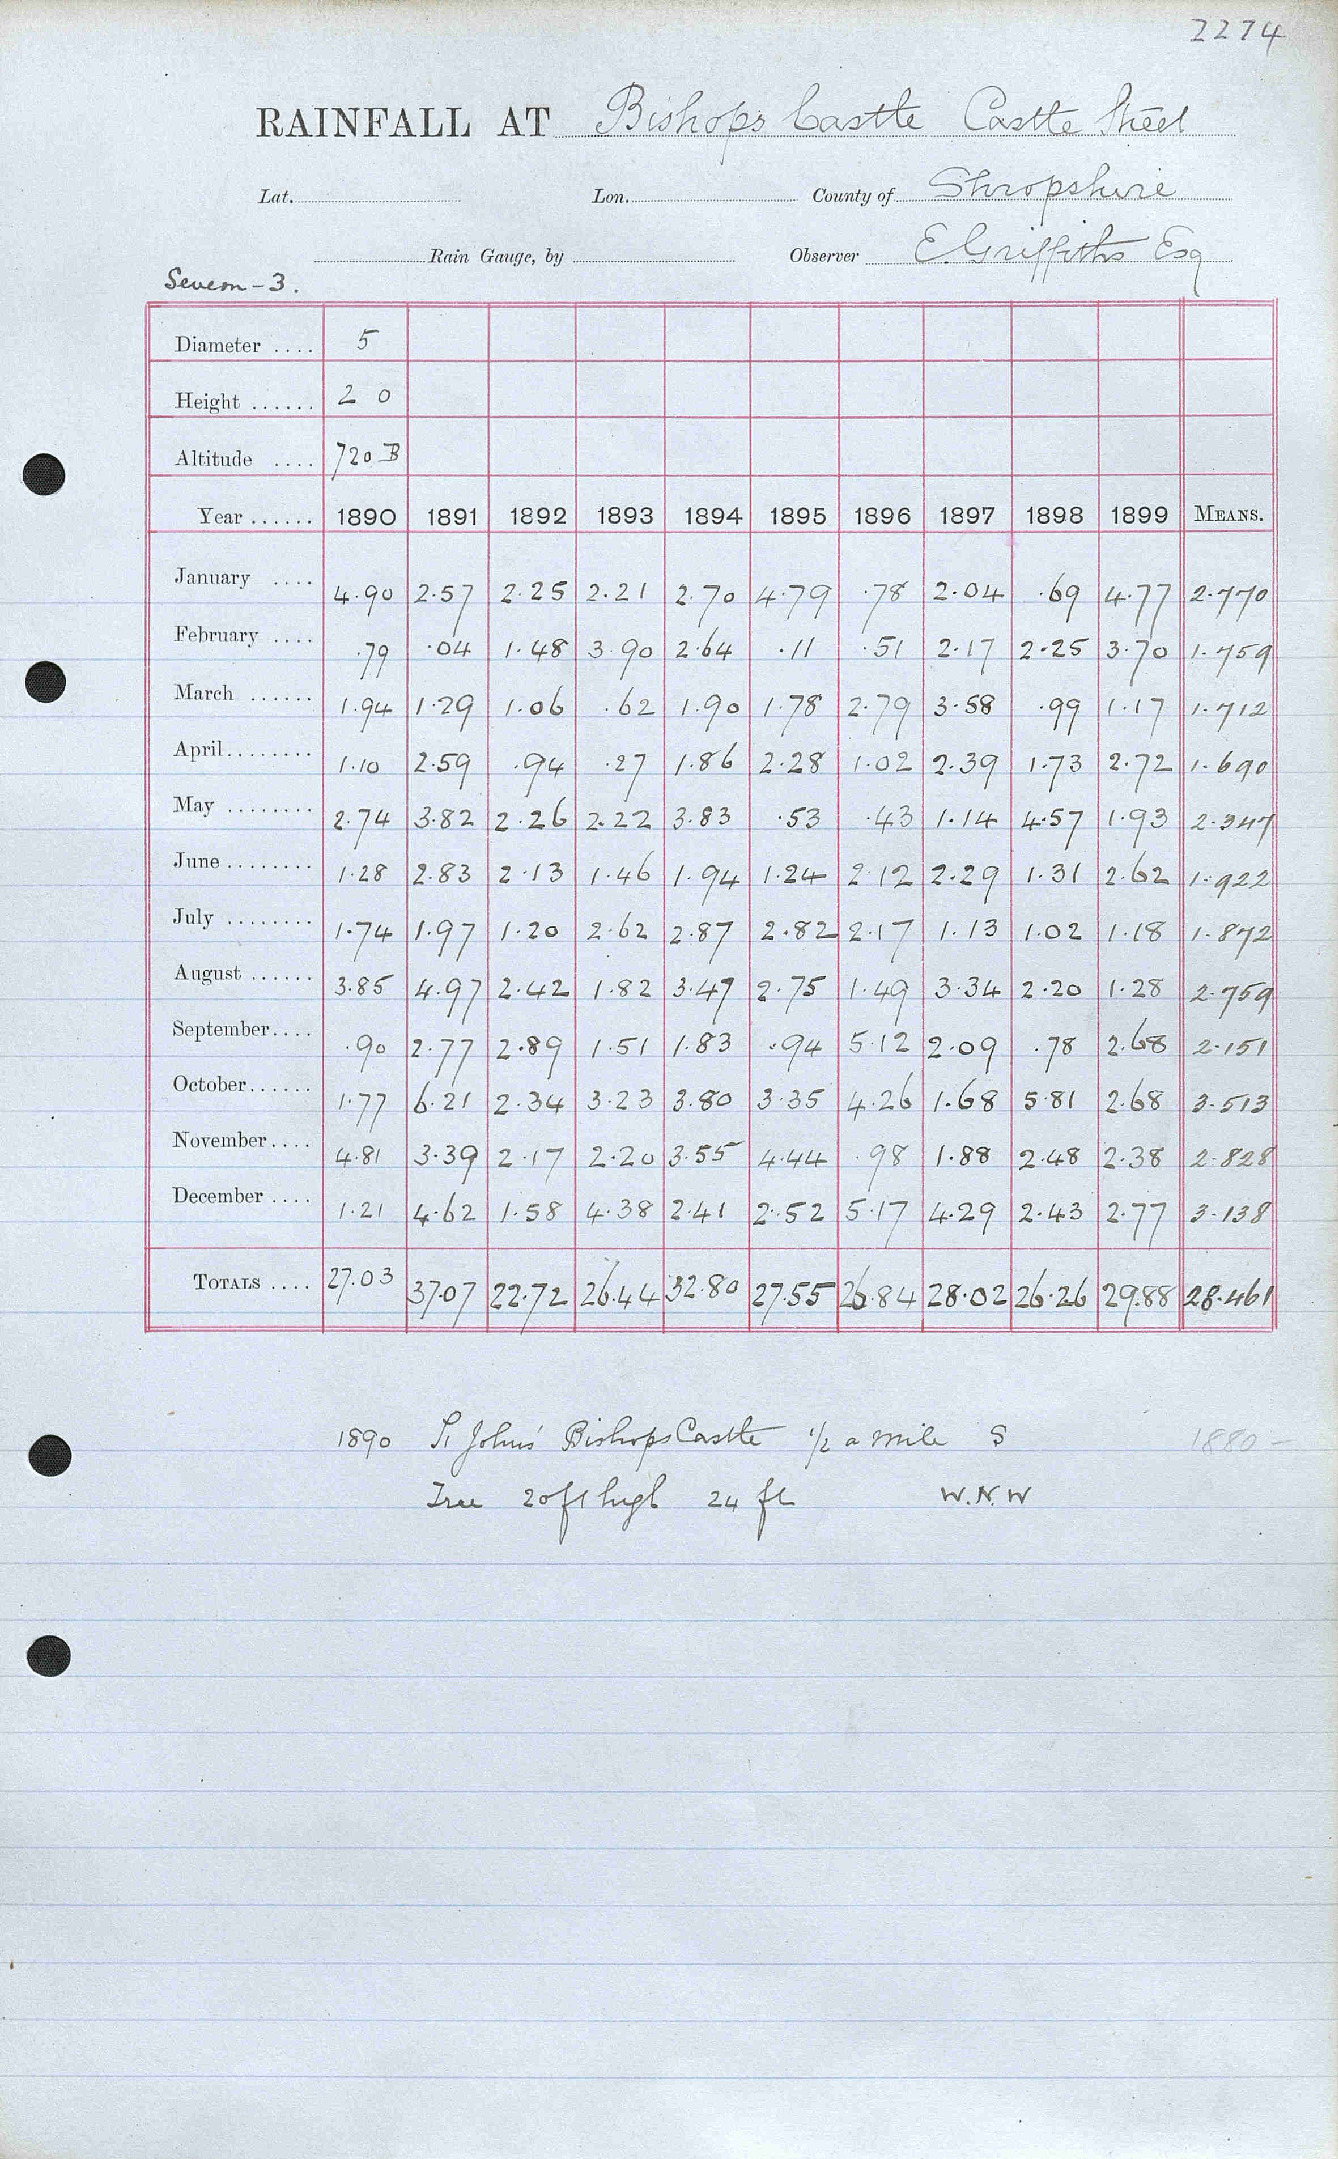 2274
RAINFALL AT Bishops Castle Castle Street
Lat. Lon. County of Shropshire
Rain Gauge, by Observer E Griffiths Esq
Severn - 3.
Diameter .... 5
Height ...... 2 0
Altitude .... 720 B
Year ...... 1890 1891 1892 1893 1894 1895 1896 1897 1898 1899 MEANS.
January .... 4.90 2.57 2.25 2.21 2.70 4.79 .78 2.04 .69 4.77 2.770
February .... .79 .04 1.48 3.90 2.64 .11 .51 2.17 2.25 3.70 1.759
March ...... 1.94 1.29 1.06 .62 1.90 1.78 2.79 3.58 .99 1.17 1.712
April........ 1.10 2.59 .94 .27 1.86 2.28 1.02 2.39 1.73 2.72 1.690
May ........ 2.74 3.82 2.26 2.22 3.83 .53 .43 1.14 4.57 1.93 2.347
June ........ 1.28 2.83 2.13 1.46 1.94 1.24 2.12 2.29 1.31 2.62 1.922
July ........ 1.74 1.97 1.20 2.62 2.87 2.82 2.17 1.13 1.02 1.18 1.872
August ...... 3.85 4.97 2.42 1.82 3.47 2.75 1.49 3.34 2.20 1.28 2.759
September.... .90 2.77 2.89 1.51 1.83 .94 5.12 2.09 .78 2.68 2.151
October...... 1.77 6.21 2.34 3.23 3.80 3.35 4.26 1.68 5.81 2.68 3.513
November.... 4.81 3.39 2.17 2.20 3.55 4.44 .98 1.88 2.48 2.38 2.828
December .... 1.21 4.62 1.58 4.38 2.41 2.52 5.17 4.29 2.43 2.77 3.138
TOTALS .... 27.03 37.07 22.72 26.44 32.80 27.55 26.84 28.02 26.26 29.88 28.461
1890 St Johns' Bishops Castle 1/2 a mile S 1880 -
Tree 20ft high 24 ft W.N.W